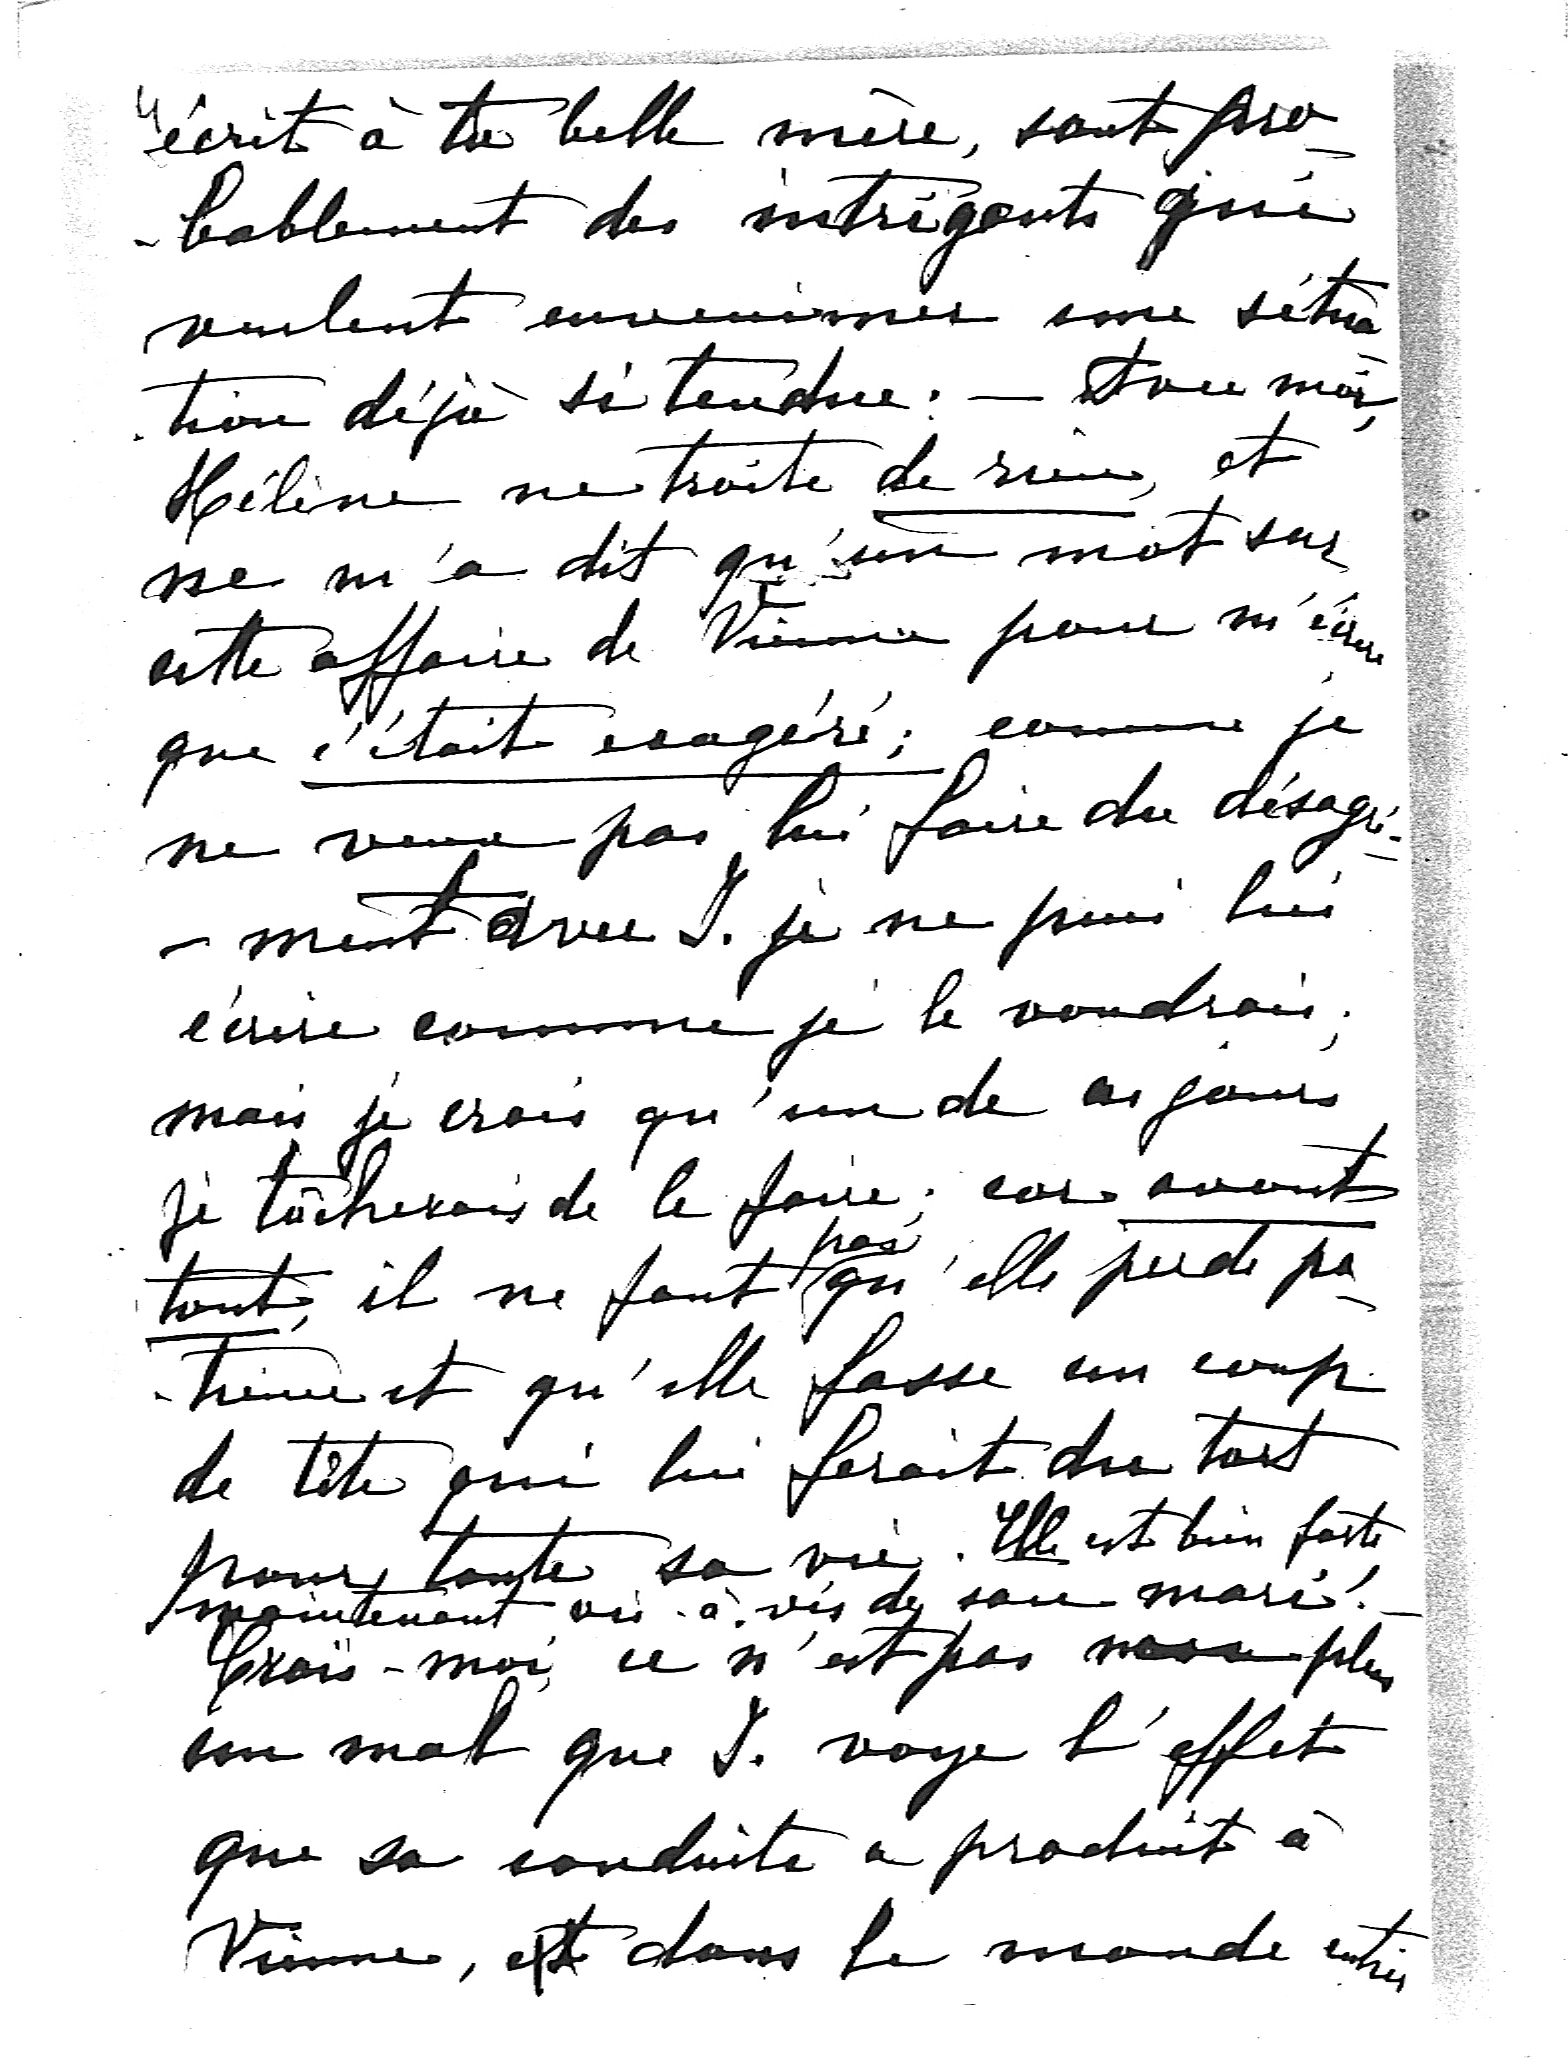 4
écrit à ta belle mère, sont pro-
-bablement des intrigants qui
veulent envenimer une situa-
-tion déjà si tendue. — Avec moi,
Hélène ne traite de rien, et
ne m'a dit qu'un mot sur
cette affaire de Vienne pour m'écrire
que c'était exagéré; comme je
ne veux pas lui faire du désagré-
-ment avec J. je ne puis lui
écrire comme je le voudrais;
mais je crois qu'un de ces jours
je tâcherais de le faire; car avant
tout, il ne faut pas qu'elle perde pa-
-tience et qu'elle fasse un coup
de tête qui lui ferait du tort
pour toute sa vie. Elle est bien forte
maintenant vis-à-vis de son mari! —
Crois-moi, ce n'est pas non plus
un mal que J. voye l'effet
que sa conduite a produit à
Vienne, et dans le monde entier